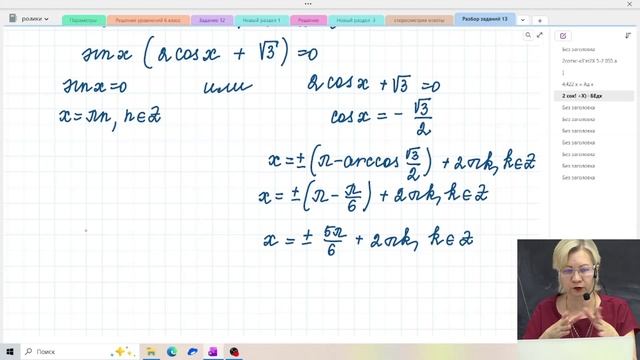 ролики
Параметры
Решение уравнений 6 класс
Задание 12
Новый раздел 1
Решение
Новый раздел 3
стереометрия ответы
Разбор заданий 13
sin x ( 2 cos x + √3 ) = 0
sin x = 0 или 2 cos x + √3 = 0
x = πn, n ∈ Z
cos x = - √3/2
x = ± (π - arccos √3/2) + 2πk, k ∈ Z
x = ± (π - π/6) + 2πk, k ∈ Z
x = ± 5π/6 + 2πk, k ∈ Z
Без заголовка
Без заголовка
Без заголовка
Без заголовка
Без заголовка
Без заголовка
Без заголовка
Без заголовка
Поиск